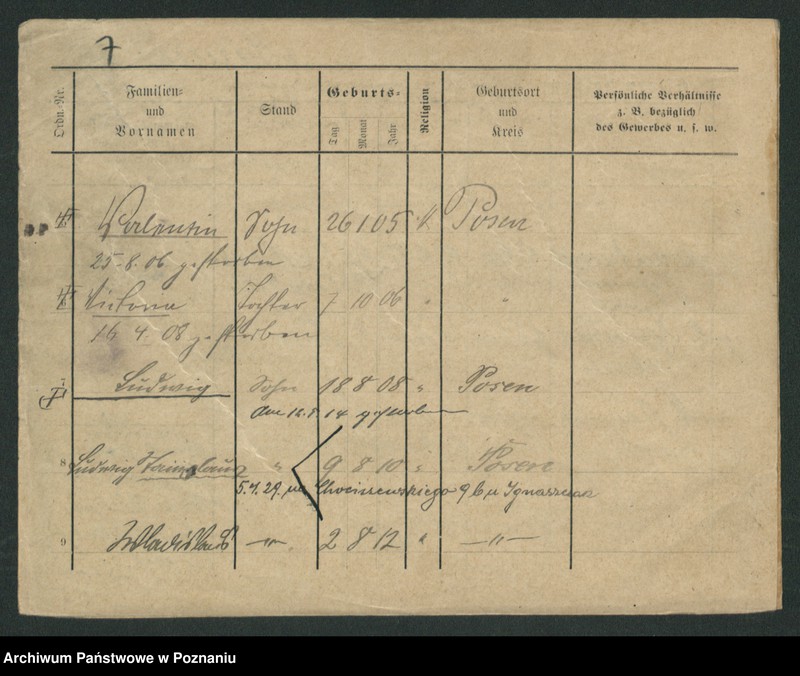 7
Ordn.-Nr. Familien- und Vornamen Stand Geburts- Tag Monat Jahr Religion Geburtsort und Kreis Persönliche Verhältnisse z. B. bezüglich des Gewerbes u. s. w.
Valentin Sohn 26 1 05 k Posen
25.8.06 gestorben
Victoria Tochter 7 10 06 " "
16 4 08 gestorben
7 Ludwig Sohn 18 8 08 " Posen
am 12.5 14 gestorben
8 Ludwig Stanislaus " 9 8 10 " Posen
5.4.29. na Chociszewskiego 9 b. u Ignaszak
9 Wladislaus " 2 8 12 " "
Archiwum Państwowe w Poznaniu